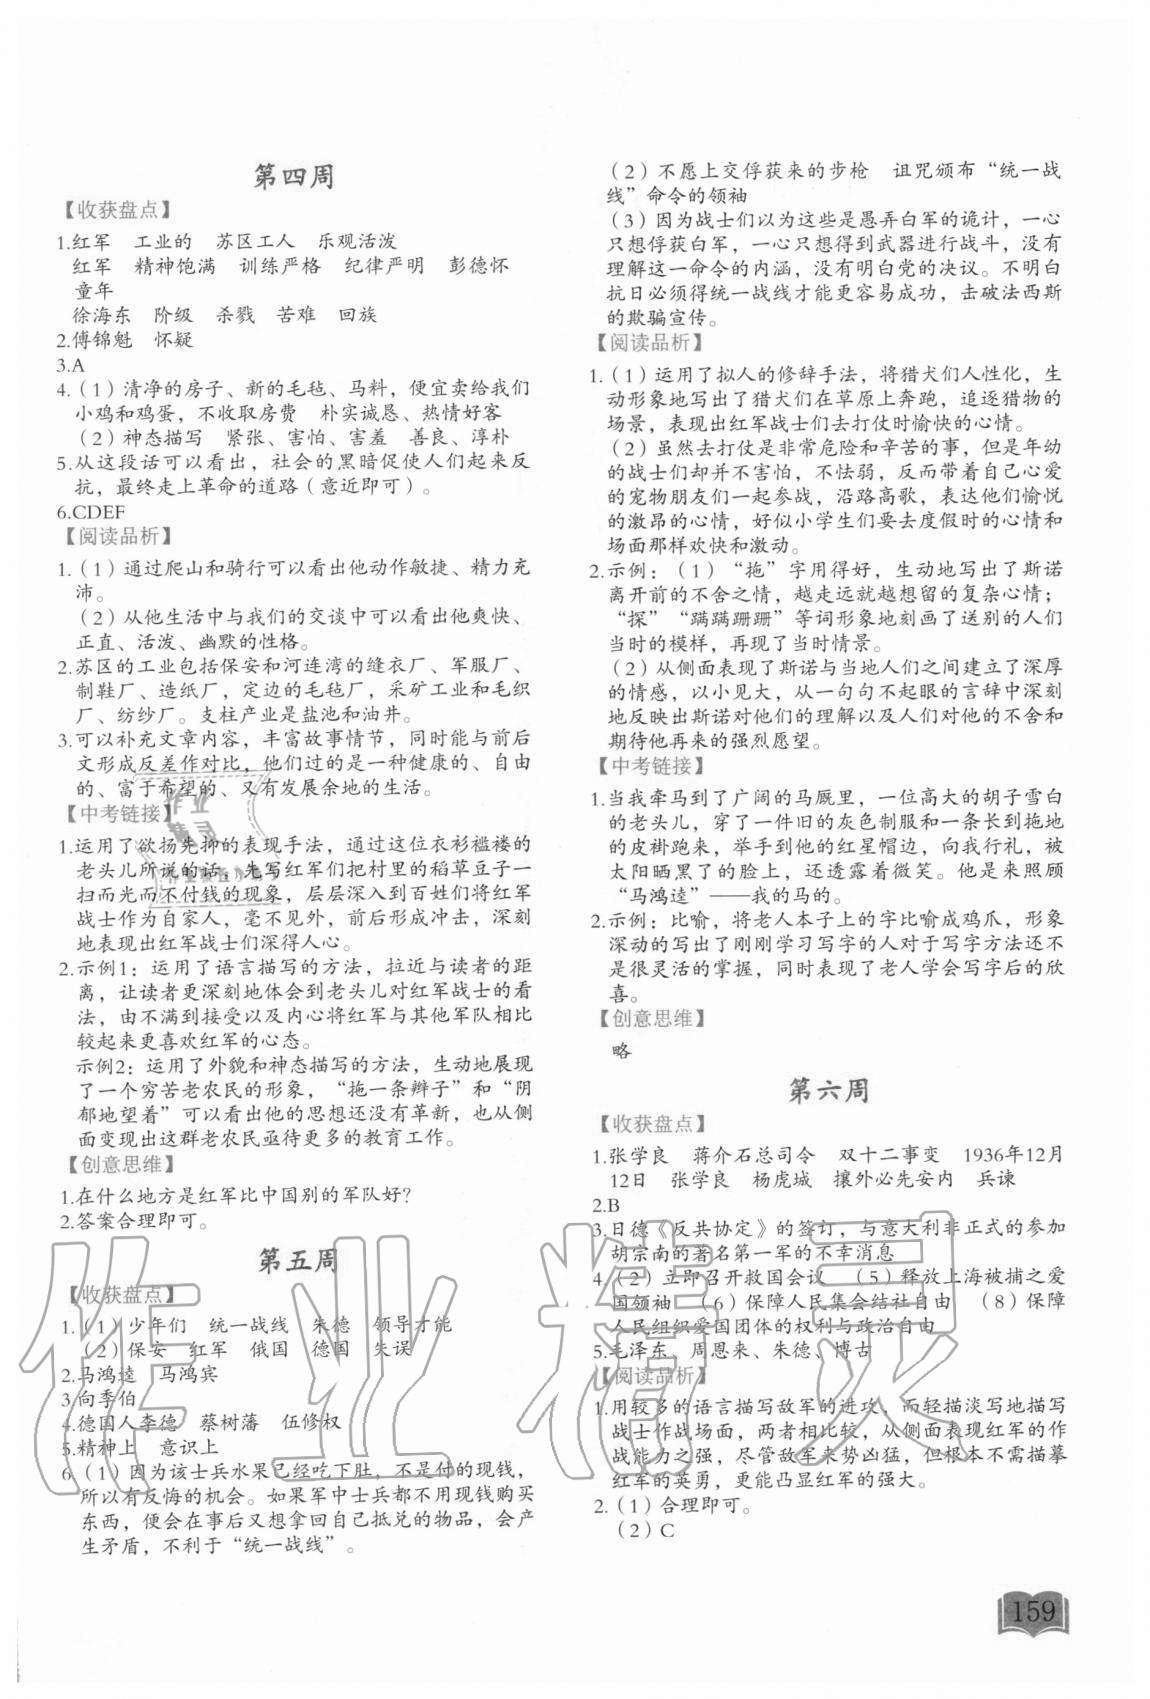 第四周
【收获盘点】
1.红军 工业的 苏区工人 乐观活泼
红军 精神饱满 训练严格 纪律严明 彭德怀
童年
徐海东 阶级 杀戮 苦难 回族
2.傅锦魁 怀疑
3.A
4.(1)清净的房子、新的毛毡、马料，便宜卖给我们
小鸡和鸡蛋，不收取房费 朴实诚恳、热情好客
(2)神态描写 紧张、害怕、害羞 善良、淳朴
5.从这段话可以看出，社会的黑暗促使人们起来反
抗，最终走上革命的道路(意近即可)。
6.CDEF
【阅读品析】
1.(1)通过爬山和骑行可以看出他动作敏捷、精力充
沛。
(2)从他生活中与我们的交谈中可以看出他爽快、
正直、活泼、幽默的性格。
2.苏区的工业包括保安和河连湾的缝衣厂、军服厂、
制鞋厂、造纸厂，定边的毛毡厂，采矿工业和毛织
厂、纺纱厂。支柱产业是盐池和油井。
3.可以补充文章内容，丰富故事情节，同时能与前后
文形成反差作对比，他们过的是一种健康的、自由
的、富于希望的、又有发展余地的生活。
【中考链接】
1.运用了欲扬先抑的表现手法，通过这位衣衫褴褛的
老头儿所说的话，先写红军们把村里的稻草豆子一
扫而光而不付钱的现象，层层深入到百姓们将红军
战士作为自家人，毫不见外，前后形成冲击，深刻
地表现出红军战士们深得人心。
2.示例1：运用了语言描写的方法，拉近与读者的距
离，让读者更深刻地体会到老头儿对红军战士的看
法，由不满到接受以及内心将红军与其他军队相比
较起来更喜欢红军的心态。
示例2：运用了外貌和神态描写的方法，生动地展现
了一个穷苦老农民的形象，“拖一条辫子”和“阴
郁地望着”可以看出他的思想还没有革新，也从侧
面变现出这群老农民亟待更多的教育工作。
【创意思维】
1.在什么地方是红军比中国别的军队好？
2.答案合理即可。
第五周
【收获盘点】
1.(1)少年们 统一战线 朱德 领导才能
(2)保安 红军 俄国 德国 失误
2.马鸿逵 马鸿宾
3.向季伯
4.德国人李德 蔡树藩 伍修权
5.精神上 意识上
6.(1)因为该士兵水果已经吃下肚，不是付的现钱，
所以有反悔的机会。如果军中士兵都不用现钱购买
东西，便会在事后又想拿回自己抵兑的物品，会产
生矛盾，不利于“统一战线”。
(2)不愿上交俘获来的步枪 诅咒颁布“统一战
线”命令的领袖
(3)因为战士们以为这些是愚弄白军的诡计，一心
只想俘获白军，一心只想得到武器进行战斗，没有
理解这一命令的内涵，没有明白党的决议。不明白
抗日必须得统一战线才能更容易成功，击破法西斯
的欺骗宣传。
【阅读品析】
1.(1)运用了拟人的修辞手法，将猎犬们人性化，生
动形象地写出了猎犬们在草原上奔跑，追逐猎物的
场景，表现出红军战士们去打仗时愉快的心情。
(2)虽然去打仗是非常危险和辛苦的事，但是年幼
的战士们却并不害怕，不怯弱，反而带着自己心爱
的宠物朋友们一起参战，沿路高歌，表达他们愉悦
的激昂的心情，好似小学生们要去度假时的心情和
场面那样欢快和激动。
2.示例：(1)“拖”字用得好，生动地写出了斯诺
离开前的不舍之情，越走远就越想留的复杂心情；
“探”“蹒蹒跚跚”等词形象地刻画了送别的人们
当时的模样，再现了当时情景。
(2)从侧面表现了斯诺与当地人们之间建立了深厚
的情感，以小见大，从一句句不起眼的言辞中深刻
地反映出斯诺对他们的理解以及人们对他的不舍和
期待他再来的强烈愿望。
【中考链接】
1.当我牵马到了广阔的马厩里，一位高大的胡子雪白
的老头儿，穿了一件旧的灰色制服和一条长到拖地
的皮褂跑来，举手到他的红星帽边，向我行礼，被
太阳晒黑了的脸上，还透露着微笑。他是来照顾
“马鸿逵”——我的马的。
2.示例：比喻，将老人本子上的字比喻成鸡爪，形象
深动的写出了刚刚学习写字的人对于写字方法还不
是很灵活的掌握，同时表现了老人学会写字后的欣
喜。
【创意思维】
略
第六周
【收获盘点】
1.张学良 蒋介石总司令 双十二事变 1936年12月
12日 张学良 杨虎城 攘外必先安内 兵谏
2.B
3.日德《反共协定》的签订，与意大利非正式的参加
胡宗南的著名第一军的不幸消息
4.(2)立即召开救国会议 (5)释放上海被捕之爱
国领袖 (6)保障人民集会结社自由 (8)保障
人民组织爱国团体的权利与政治自由
5.毛泽东、周恩来、朱德、博古
【阅读品析】
1.用较多的语言描写敌军的进攻，而轻描淡写地描写
战士作战场面，两者相比较，从侧面表现红军的作
战能力之强，尽管敌军来势凶猛，但根本不需描摹
红军的英勇，更能凸显红军的强大。
2.(1)合理即可。
(2)C
159
作业精灵